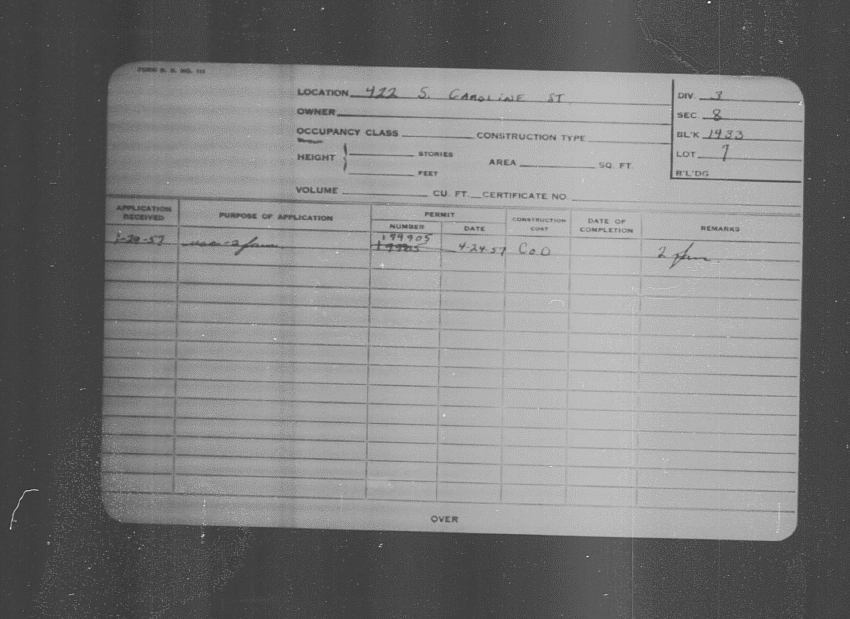 FORM B. D. NO. 111
LOCATION 422 S. CAROLINE ST.
DIV. 3
OWNER
SEC. 8
OCCUPANCY CLASS CONSTRUCTION TYPE
BL'K 1433
HEIGHT STORIES AREA SQ. FT.
LOT 7
FEET
B'L'DG
VOLUME CU. FT. CERTIFICATE NO.
APPLICATION RECEIVED PURPOSE OF APPLICATION PERMIT NUMBER DATE CONSTRUCTION COST DATE OF COMPLETION REMARKS
199905
4-24-57 C.O.D 2 fam
OVER